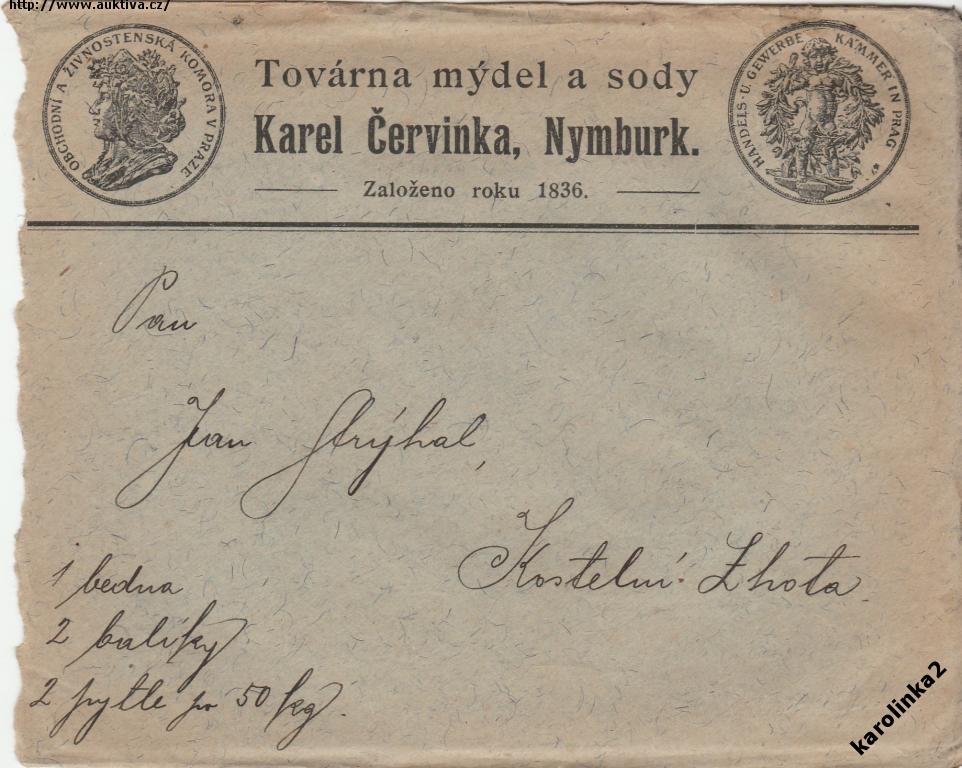 http://www.auktiva.cz/
OBCHODNÍ A ŽIVNOSTENSKÁ KOMORA V PRAZE
Továrna mýdel a sody
Karel Červinka, Nymburk.
Založeno roku 1836.
HANDELS- U. GEWERBE KAMMER IN PRAG
Pan
Jan Strýhal,
Kostelní Lhota.
1 bedna
2 balíky
2 pytle po 50 kg.
karolinka2